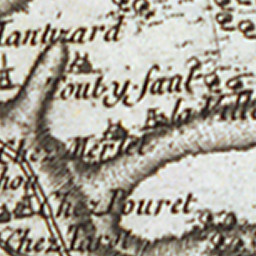 Mantizard
Tout-y-faut
la Ville
Chez Merlet
Chez Pouret
Chez Tardi